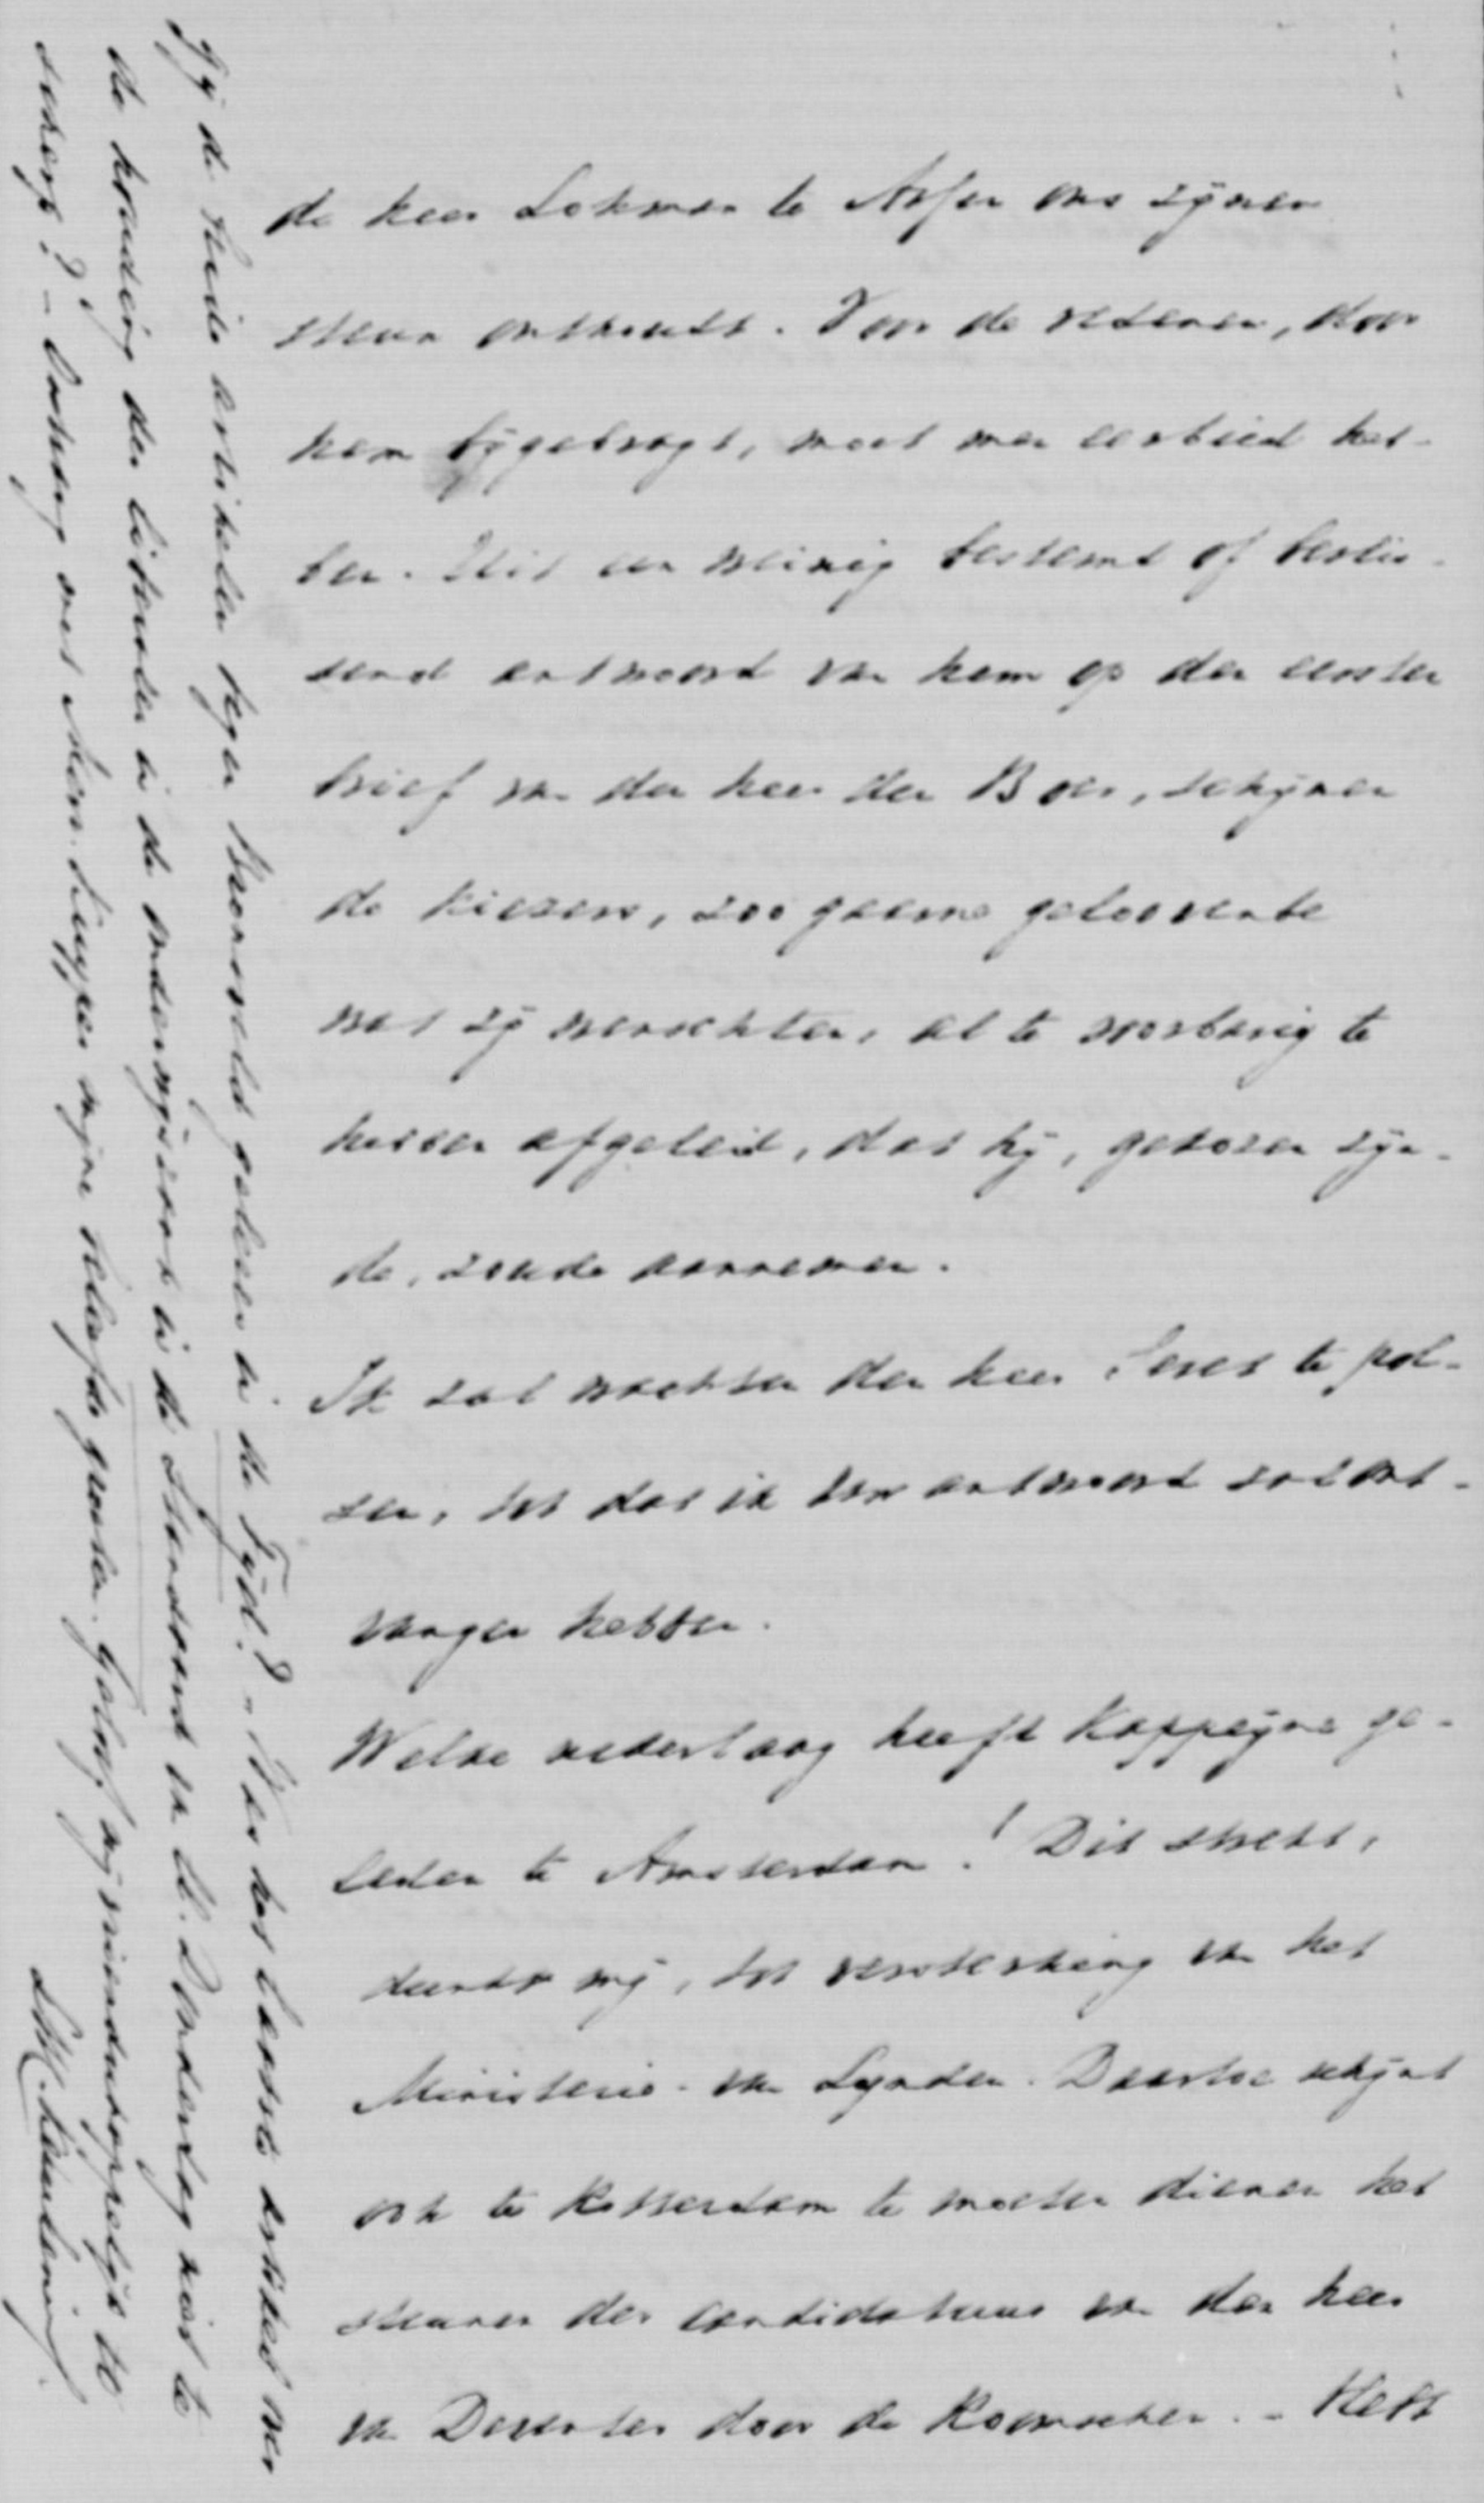 de heer Lohman te Assen ons zijnen
steun onthoudt. Voor de redenen, door
hem bijgebragt, moet men eerbied heb-
ben. Uit een weinig bestemd of beslis-
send antwoord van hem op den eersten
brief van den heer den Boer, schijnen
de kiezers, zoo gaarne geloovende
wat zij wenschten, al te voorbarig te
hebben afgeleid, dat hij, gekozen zijn-
de, zoude aannemen.
Ik zal wachten den heer te pol-
sen, tot dat ik Uw antwoord zal ont-
vangen hebben.
Welke nederlaag heeft Kappeyne ge-
leden te Amsterdam! Dit strekt,
dunkt mij, tot versterking van het
Ministerie - van Lynden. Daartoe schijnt
ook te Rotterdam te moeten dienen het
steunen der candidatuur van den heer
van Deventer door de Roomschen. - Hebt
Gij de beide artikelen tegen Bronsveld gelezen in de Tijd? - Was het laatste artikel over
de houding der liberalen in de onderwijszaak in de Standaard van l.l. Donderdag niet te
scherp? - Ontvang met Mevr. Kuyper mijne beleefde groeten. Geloof mij vriendschappelijk te
L.W. Keuchenius